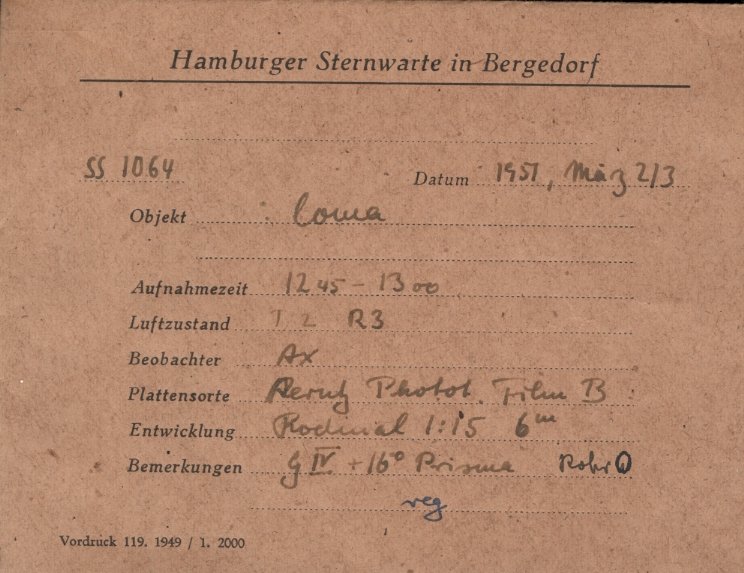 Hamburger Sternwarte in Bergedorf
SS 1064 Datum 1951, März 2/3
Objekt Coma
Aufnahmezeit 12 45 – 13 00
Luftzustand T 2 R3
Beobachter Ax
Plattensorte Perutz Photot. Film B
Entwicklung Rodinal 1:15 6m
Bemerkungen G IV + 16° Prisma Rohr
reg
Vordruck 119. 1949 / 1. 2000